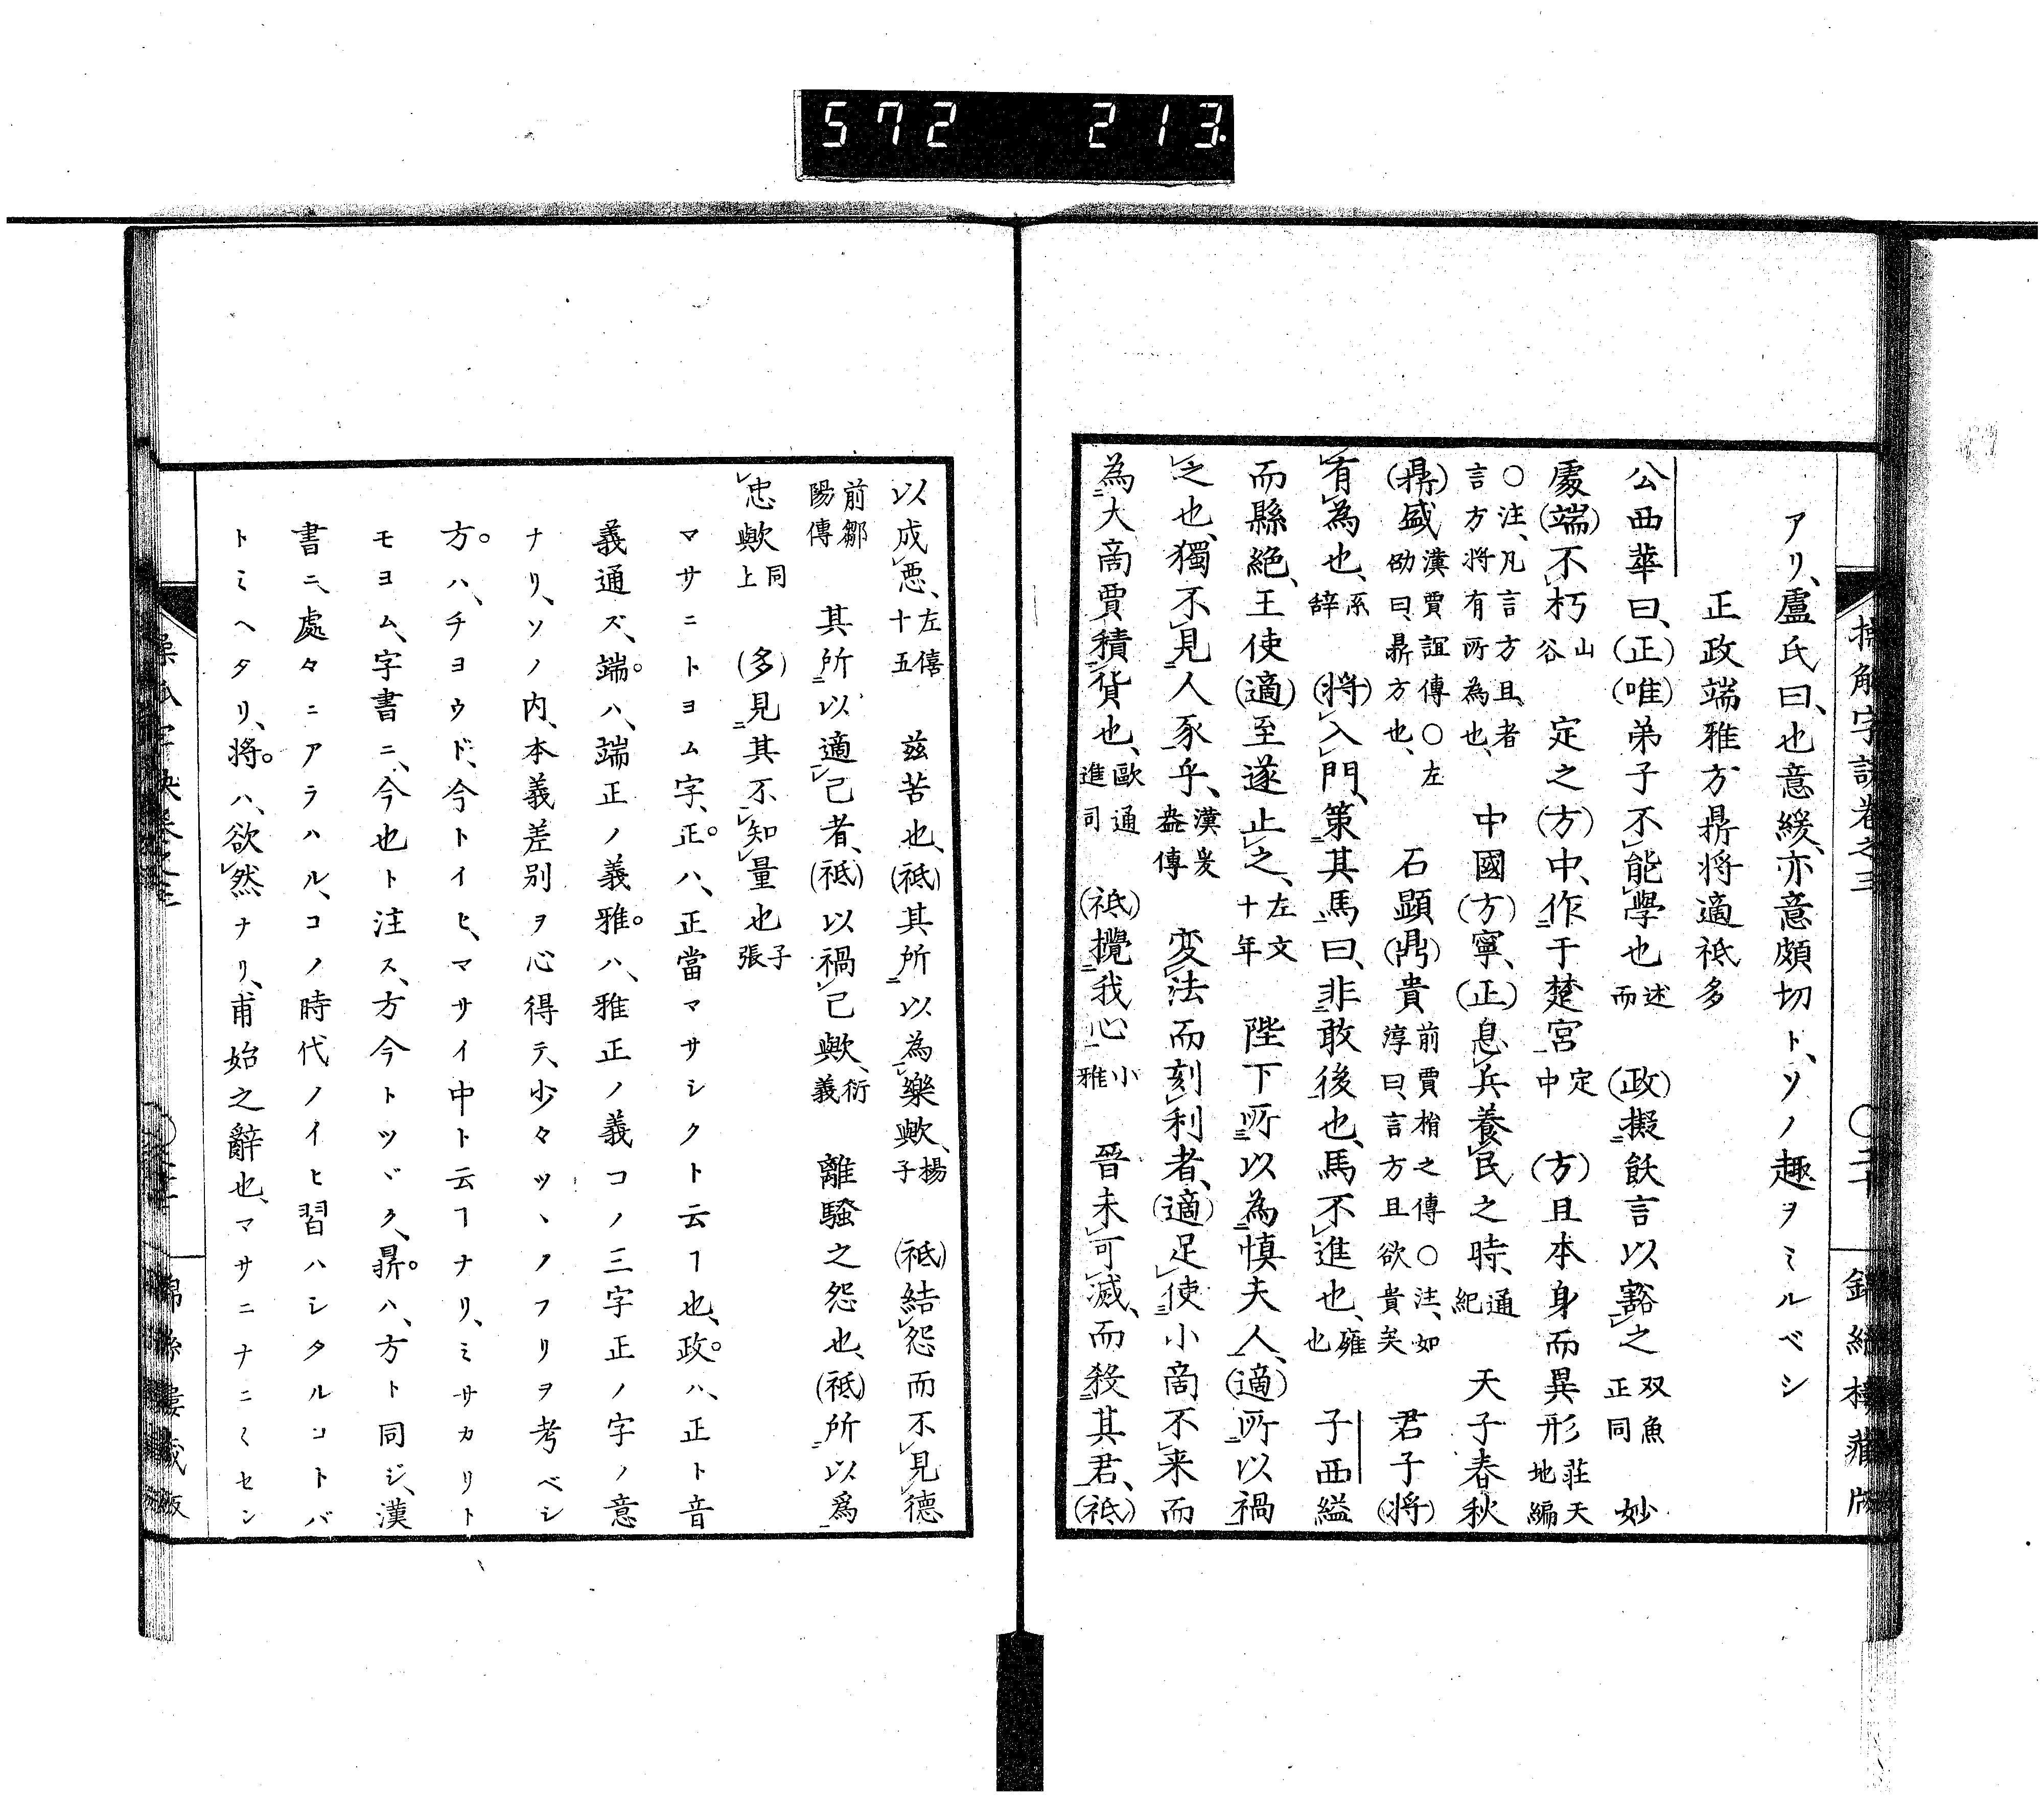 572 213
アリ、盧氏曰、也意緩、亦意頗切ト、ソノ趣ヲミルベシ
正政端雅方鼎将適祗多
公西華曰、(正)(唯)弟子不能學也 述而 (政)擬飫言以豁之 双魚正同 妙
處(端)不朽 山谷 定之(方)中、作于楚宮 定中 (方)且本身而異形 荘天地編
○注、凡言方且者言方将有所為也、 中國(方)寧、(正)息兵養民之時、 通紀 天子春秋
(鼎)盛 漢賈誼傳○左 劭曰、鼎方也、 石顕(鼎)貴 前賈捐之傳○注、如淳曰、言方且欲貴矣 君子(将)
有為也、 系辞 (将)入門、策其馬曰、非敢後也、馬不進也、 雍也 子西縊
而縣絶、王使(適)至遂止之、 左文十年 陛下所以為慎夫人、(適)所以禍
之也、獨不見人豕乎、 漢爰盎傳 変法而刻利者、(適)足使小啇不来而
為大啇賈積貨也、 歐通進司 (祗)攪我心 小雅 晉未可滅、而殺其君、(祗)
以成悪、 左僖十五 茲苦也、(祗)其所以為樂歟、 楊子 (祗)結怨而不見徳
前鄒陽傳 其所以適己者、(祗)以禍己歟、 衍義 離騒之怨也、(祗)所以爲
忠歟 同上 (多)見其不知量也 子張
マサニトヨム字、正。ハ、正當マサシクト云ヿ也、政。ハ、正ト音
義通ズ、端。ハ、端正ノ義雅。ハ、雅正ノ義コノ三字正ノ字ノ意
ナリ、ソノ内、本義差別ヲ心得テ、少々ツヽノフリヲ考ベシ
方。ハ、チヨウド、今トイヒ、マサイ中ト云ヿナリ、ミサカリト
モヨム、字書ニ、今也ト注ス、方今トツヾク、鼎。ハ、方ト同ジ、漢
書ニ、處々ニアラハル、コノ時代ノイヒ習ハシタルコトバ
トミヘタリ、将。ハ、欲然ナリ、甫始之辭也、マサニナニミセン